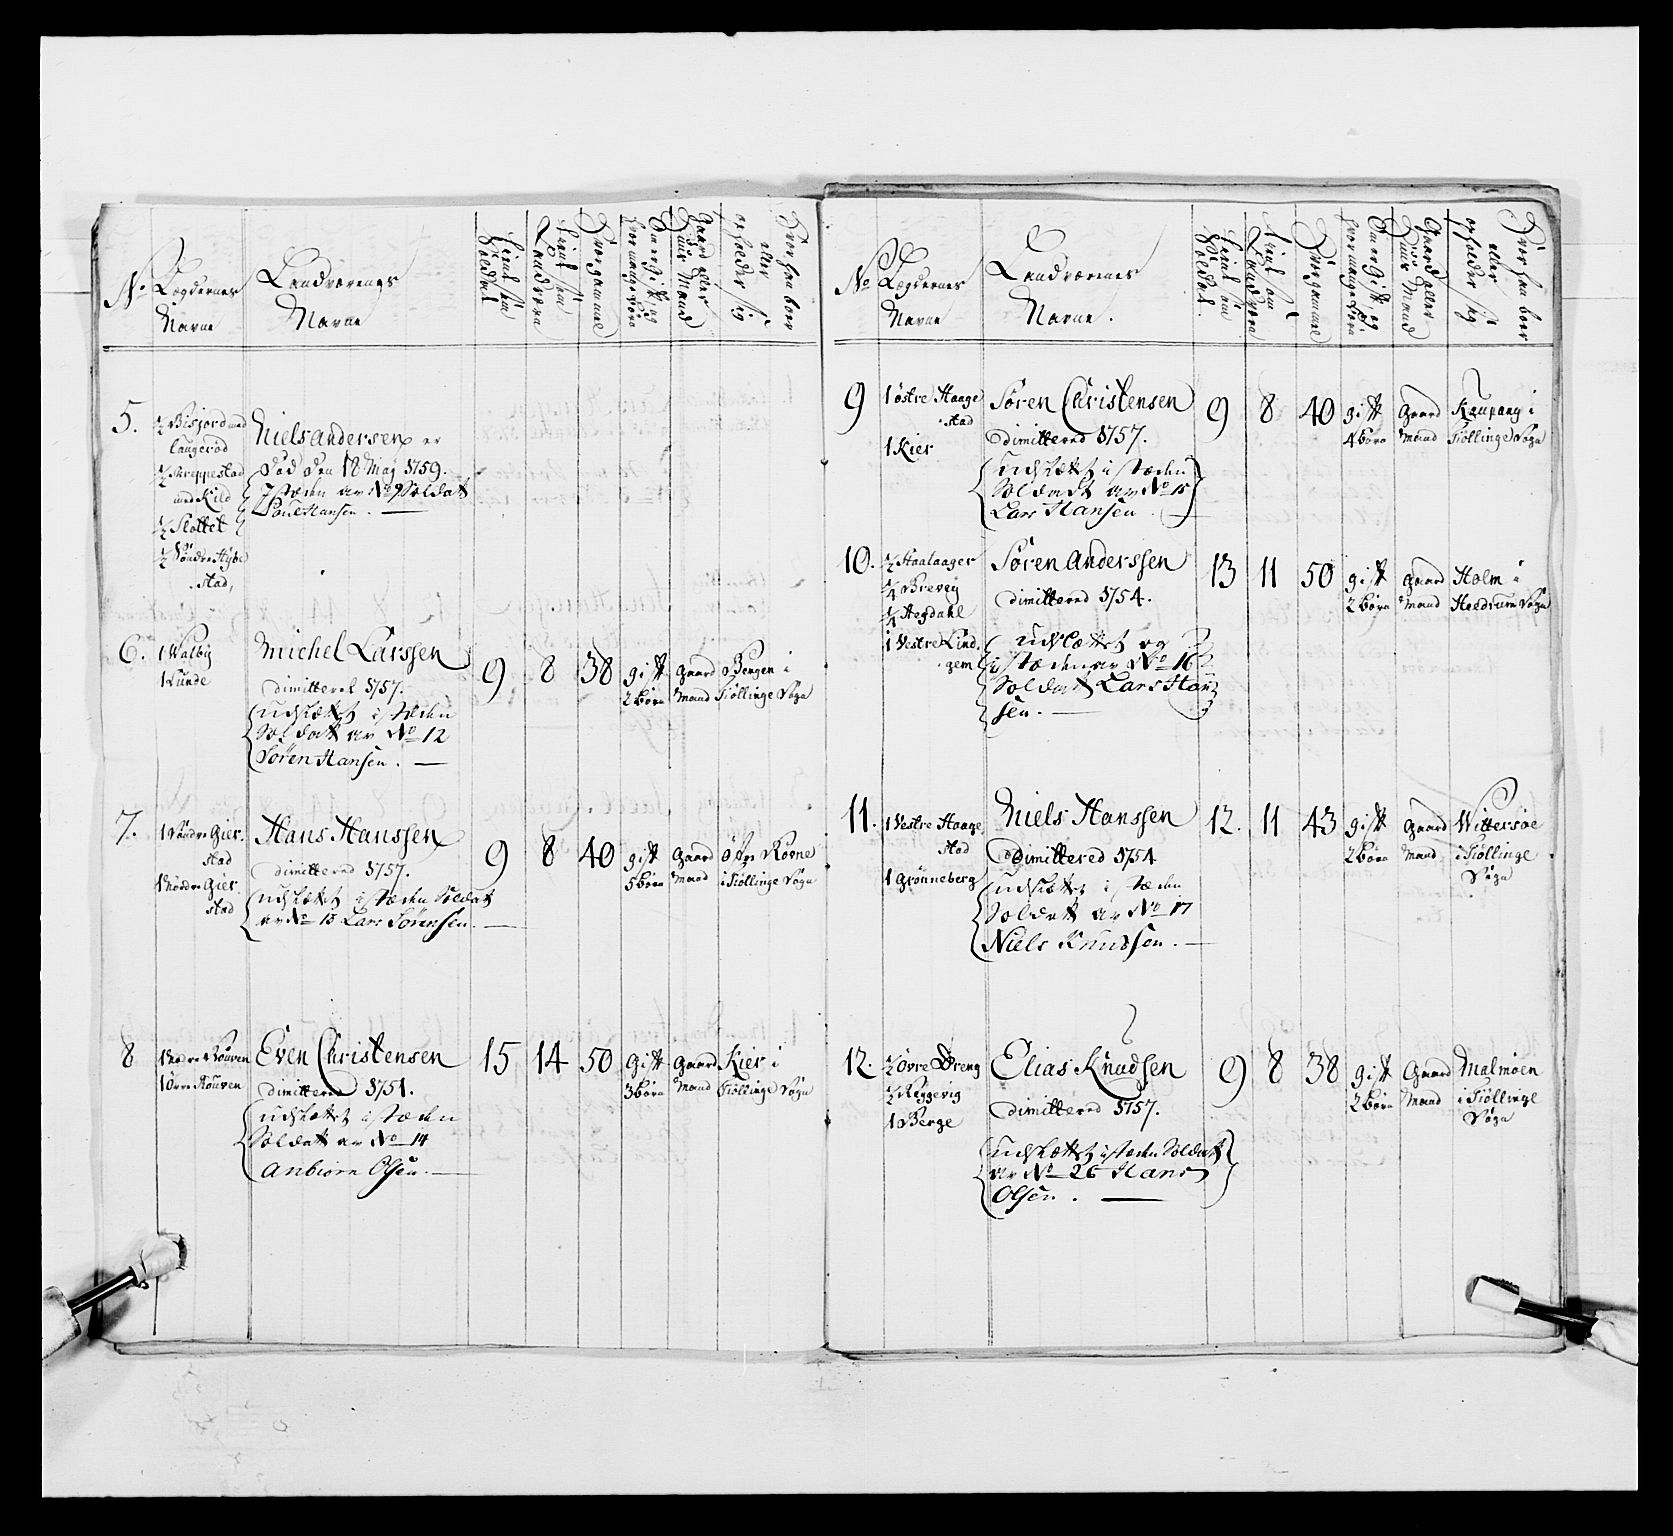 No
Lægdernes
Navne
Landværnes
Navne
tient som
Soldat
tient som
Landværn
Hvor gammel
Om er Gift og
hvor mange Børn
Gaard eller
Huus Mand
Hvor han boer
eller
opholder sig
5.
Langerød
Niels Andersen er
død den 18 May 1759.
I stæden av No 9 Soldat
Poul Hansen.
½ Skreppestad
med Kild
½ Slottet
½ Søndre Hybe
stad,
6.
1 Valby
1 Lunde
Michel Larssen
dimittered 1757.
udsættet i stæden
Soldat av No 12
Søren Hansen.
9 8 38 gift
2 børn
Gaard
Mand
Bergen i
Tiøllinge Sogn
7.
1 Søndre Gier
stad
1 Nordre Gier
stad
Hans Hanssen
dimittered 1757.
udsættet i stæden Soldat
av No 13 Lars Sørensen.
9 8 40 gift
5 børn
Gaard
Mand
i Tiøllinge Sogn
8
1 Nedre Rouven
1 Øvre Rouven
Even Christensen
dimittered 1751.
udsættet i stæden
Soldat av No 14
Anbiørn Olsen.
15 14 50 gift
3 børn
Gaard
Mand
Kier i
Tiøllinge Sogn
No
Lægdernes
Navne
Landværnes
Navne.
tient som
Soldat
tient som
Landværn
Hvor gammel
Om er Gift og
hvor mange Børn
Gaard eller
Huus Mand
Hvor han boer
eller
opholder sig
9
1 Østre Haage
stad
1 Kier
Søren Christensen
dimittered 1757.
udsættet i stæden
Soldat av No 15
Lars Hansen
9 8 40 gift
4 børn
Gaard
Mand
Kaupang i
Tiøllinge Sogn
10.
½ Haalaager
¼ Brevig
¼ Hegdahl
1 Vestre Lind
gem
Søren Anderssen
dimittered 1754.
udsættet og
i stæden av No 16
Soldat Lars Han
sen.
13 11 50 gift
2 børn
Gaard
Mand
Holm i
Hedrum Sogn
11.
1 Vestre Haage
stad
1 Grønneberg
Niels Hanssen
dimittered 1754
udsættet i stæden
Soldat av No 17
Niels Knudsen.
12. 11 43 gift
2 børn
Gaard
Mand
Wittersøe
i Tiøllinge
Sogn
12.
½ Øvre Dreng
½ Reggevig
1 Berge
Elias Knudsen
dimittered 1757.
udsættet i stæden Soldat
av No 26 Hans
Olsen.
9 8 38 gift
2 børn
Gaard
Mand
Malmøen
i Tiøllinge
Sogn